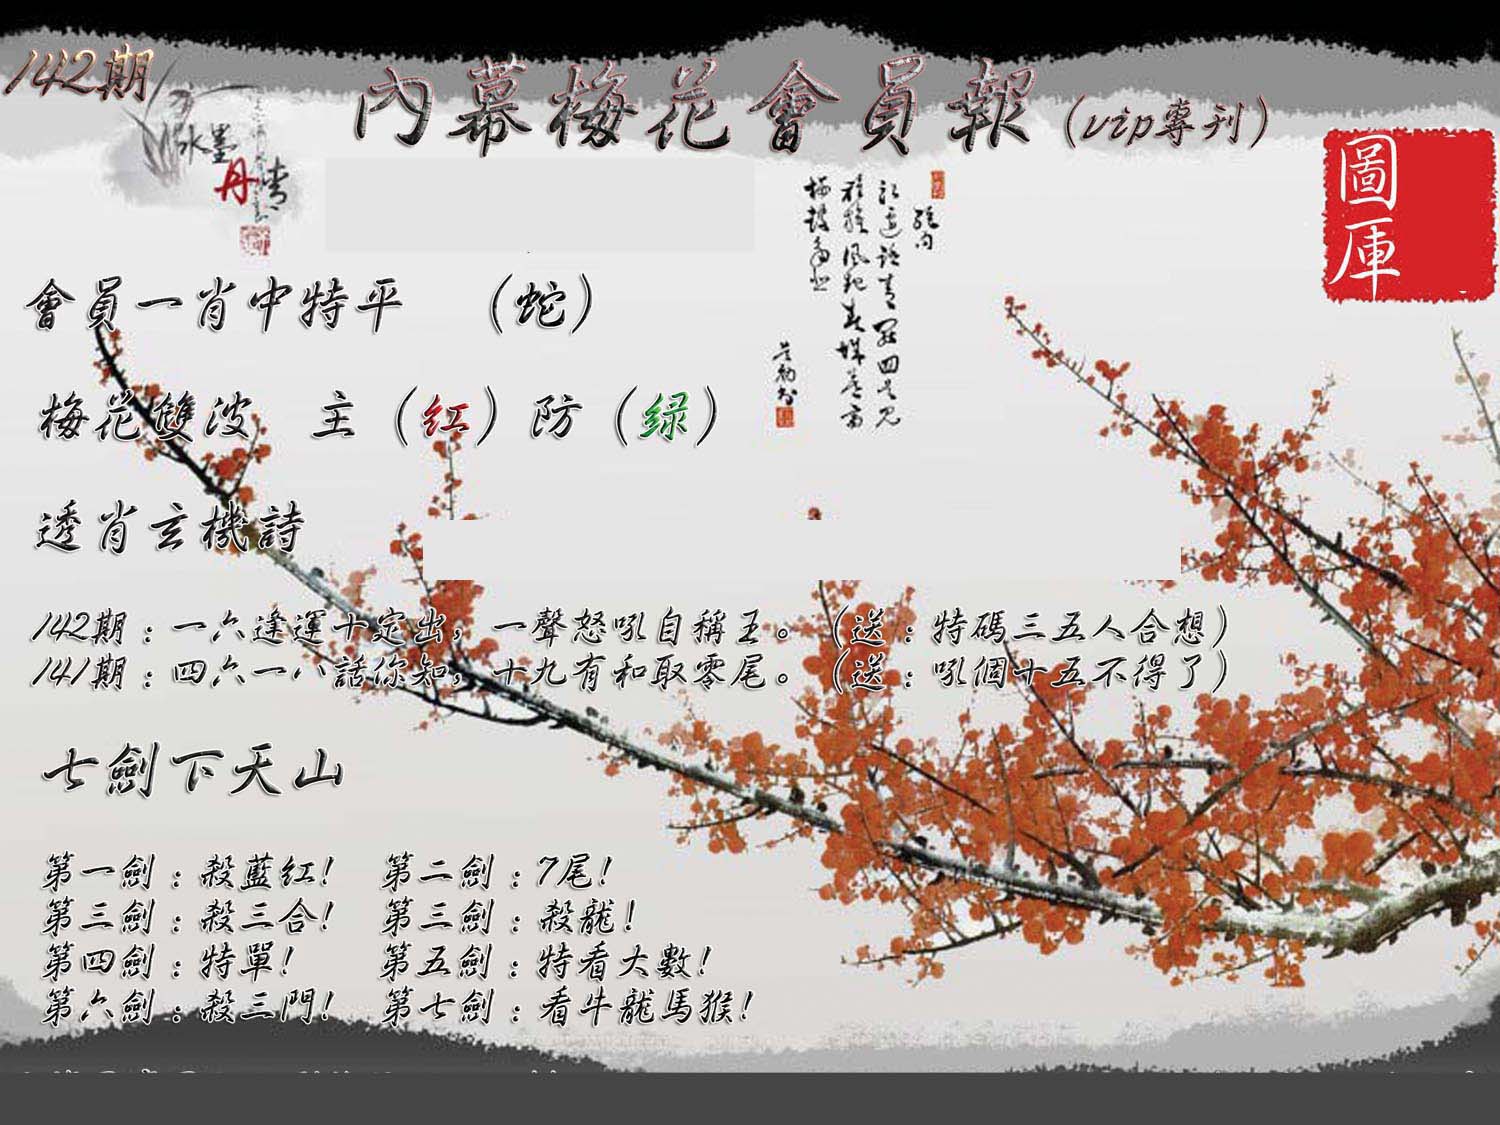 142期
內幕梅花會員報(vip專刊)
水墨
丹青
圖
庫
會員一肖中特平 (蛇)
梅花雙波 主(红)防(绿)
透肖玄機詩
142期：一六逢運十定出，一聲怒吼自稱王。(送：特碼三五人合想)
141期：四六一八話你知，十九有和取零尾。(送：吼個十五不得了)
七劍下天山
第一劍：殺藍红! 第二劍：7尾!
第三劍：殺三合! 第三劍：殺龍!
第四劍：特單! 第五劍：特看大數!
第六劍：殺三門! 第七劍：看牛龍馬猴!